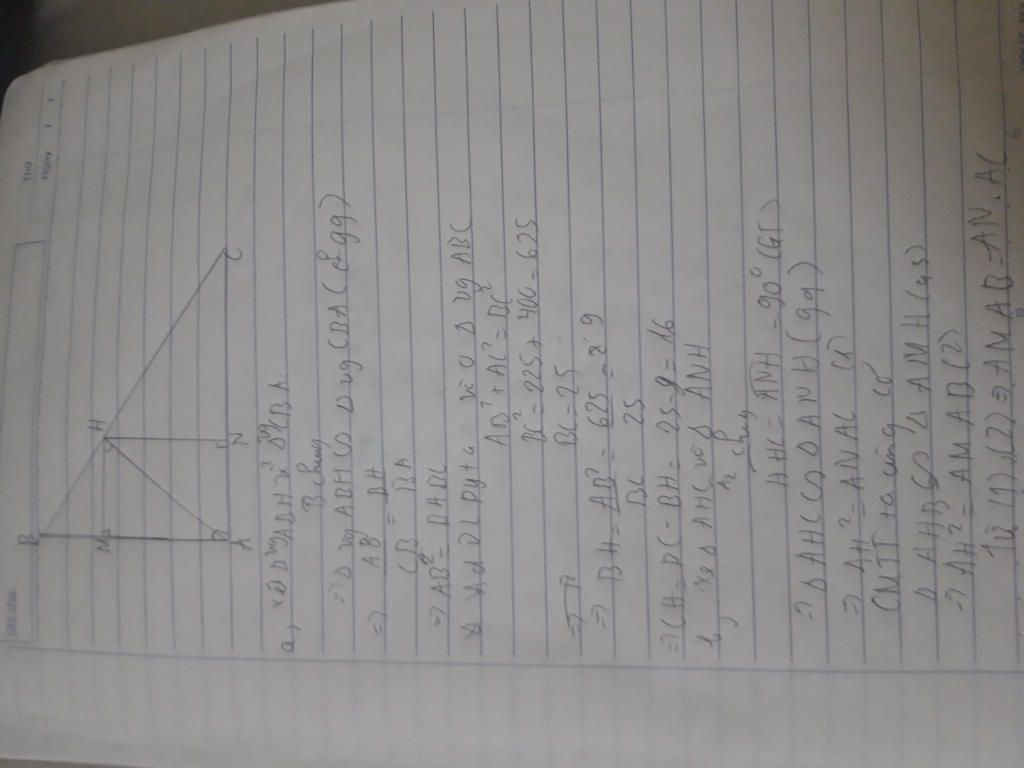 Thứ
Ngày
B
M
H
A
N
C
a, xét Δ vg ABH và Δ vg CBA
B chung
=> Δ vg ABH ∽ Δ vg CBA (gg)
=> AB/CB = BH/BA
=> AB² = BH.BC
Ad DL Py ta vào Δ vg ABC
AB² + AC² = BC²
BC² = 225 + 400 = 625
BC = 25
=> BH = AB²/BC = 9
=> CH = BC - BH = 25 - 9 = 16
b, xét Δ AHC và Δ ANH
A₂ chung
AHC = ANH = 90° (GT)
=> Δ AHC ∽ Δ ANH (gg)
=> AH² = AN.AC (1)
CMTT ta cũng có
Δ AHB ∽ Δ AMH (g.g)
=> AH² = AM.AB (2)
Từ (1), (2) => AM.AB = AN.AC